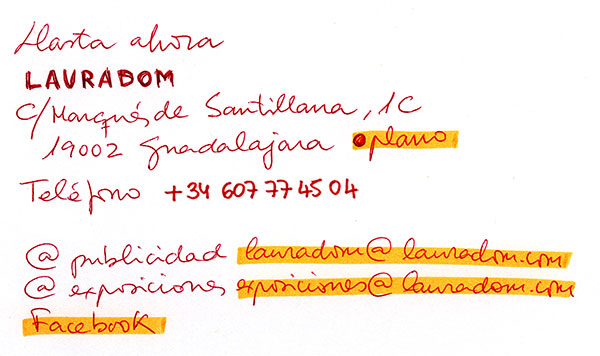 Hasta ahora
LAURADOM
C/Marqués de Santillana, 1C
19002 Guadalajara plano
Teléfono +34 607 77 45 04
@ publicidad lauradom@lauradom.com
@ exposiciones exposiciones@lauradom.com
Facebook